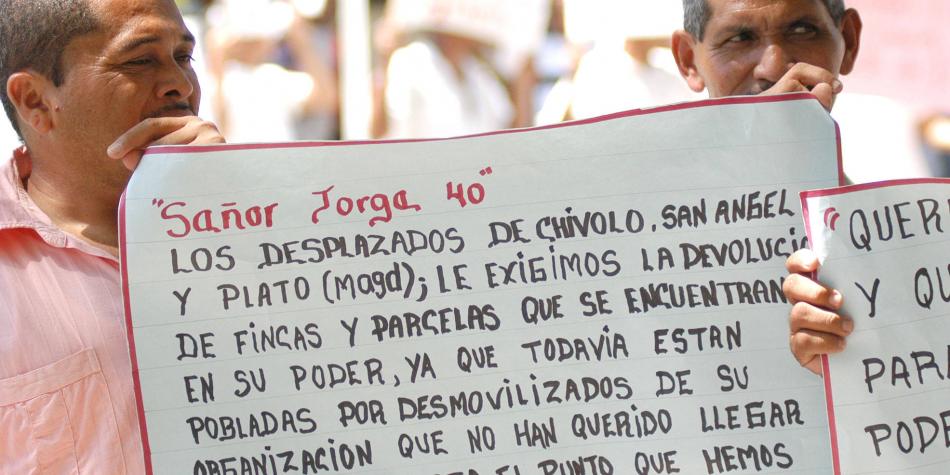 "Sañor Jorga 40"
LOS DESPLAZADOS DE CHÍVOLO, SAN ANGEL
Y PLATO (Magd); LE EXIGIMOS LA DEVOLUCIO
DE FINCAS Y PARCELAS QUE SE ENCUENTRAN
EN SU PODER, YA QUE TODAVÍA ESTAN
POBLADAS POR DESMOVILIZADOS DE SU
ORGANIZACION QUE NO HAN QUERIDO LLEGAR
EL PUNTO QUE HEMOS
"QUER
Y QU
PARA
PODE